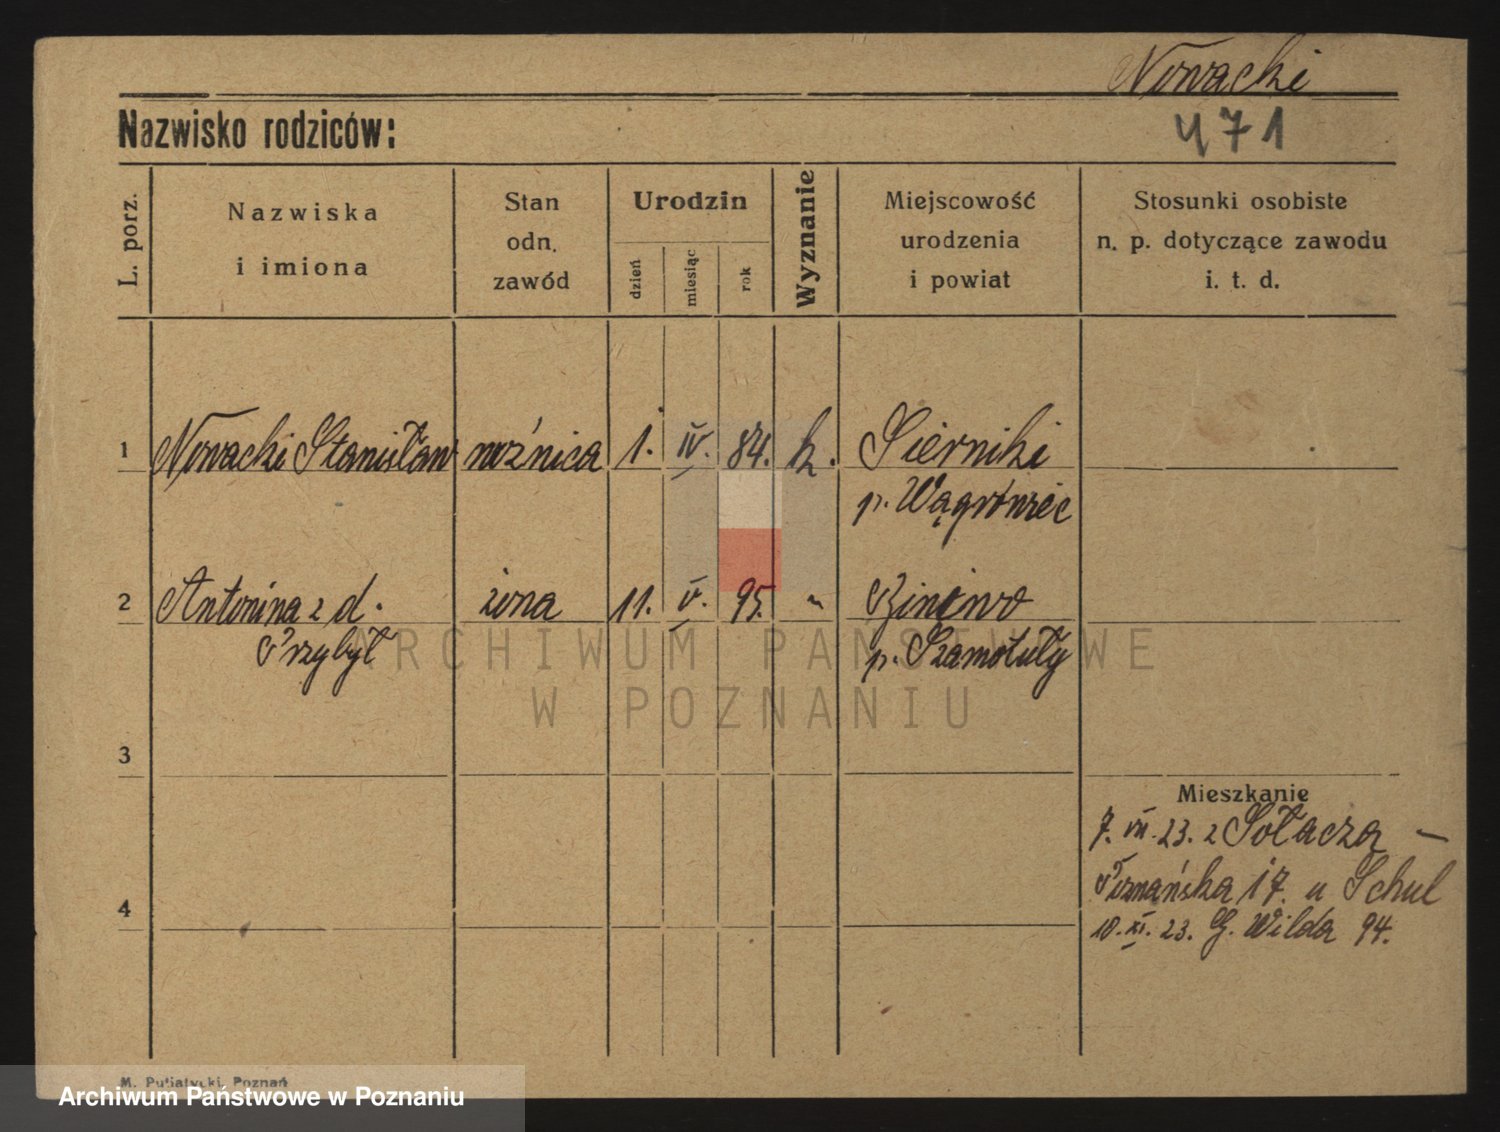 Nowacki
Nazwisko rodziców: 471
L. porz.
Nazwiska
i imiona
Stan
odn.
zawód
Urodzin
dzień
miesiąc
rok
Wyznanie
Miejscowość
urodzenia
i powiat
Stosunki osobiste
n. p. dotyczące zawodu
i. t. d.
1 Nowacki Stanisław woźnica 1. IV. 84. k. Sierniki
p. Wągrówiec
2 Antonina z d. żona 11. V. 95. "
Przybył p. Szamotuły
ARCHIWUM PAŃSTWOWE
W POZNANIU
3
Mieszkanie
7. VII. 23. z Sołacza –
Poznańska 17. u Schul
4
10. XI. 23. G. Wilda 94.
M. Putiatycki, Poznań
Archiwum Państwowe w Poznaniu